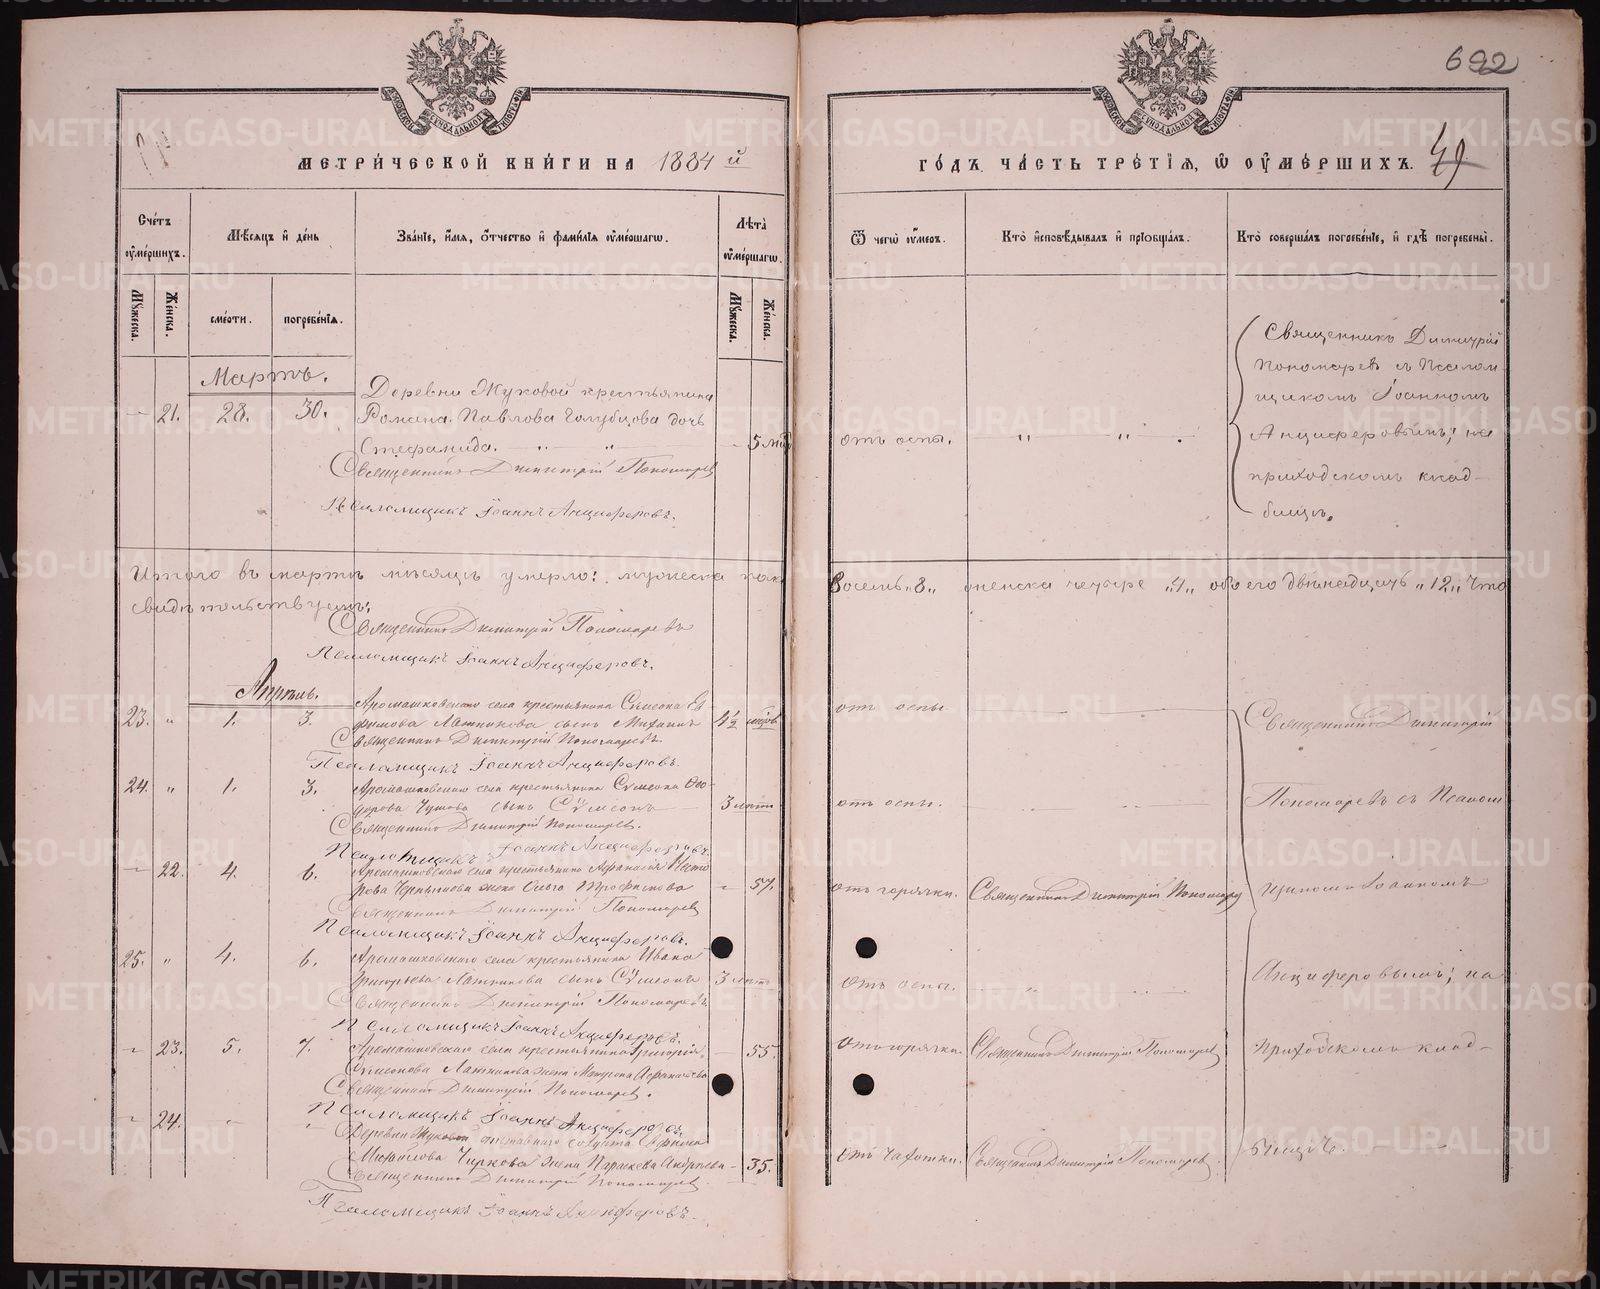 692
МЕТРИЧЕСКОЙ КНИГИ НА 1884 й
ГОДЪ ЧАСТЬ ТРЕТІЯ, Ѡ ОУМЕРШИХЪ. 49
Счетъ оумершихъ.
Мѣсяцъ и день
Званіе, имя, отчество и фамилія оумершагѡ.
Лѣта оумершагѡ.
Ѿ чегѡ оумеръ.
Кто исповѣдывалъ и пріобщалъ.
Кто совершалъ погребеніе, и гдѣ погребены.
Мужеска.
Женска.
смерти.
погребенія.
Мужеска.
Женска.
Мартъ.
21. 28. 30.
Деревни Жуковой крестьянина
Романа Павлова Голубцова дочь
Стефанида. 5 мѣс
отъ оспы.
Священникъ Димитрій Пономаревъ
Псаломщикъ Іоаннъ Анциферовъ.
Священникъ Димитрій
Пономаревъ съ Псалом
щикомъ Іоанномъ
Анциферовымъ; на
приходскомъ клад-
бищѣ.
Итого въ мартѣ мѣсяцѣ умерло: мужеска пола
Восемь „8„ женска четыре „4„ обоего двѣнадцать „12„ Что
свидѣтельствуемъ:
Священникъ Димитрій Пономаревъ
Псаломщикъ Іоаннъ Анциферовъ.
Апрѣль.
23. „ 1. 3.
Аромашковскаго села крестьянина Сѵмеона Ев
фимова Латникова сынъ Михаилъ
4½ мѣсяц
отъ оспы
Священникъ Димитрій Пономаревъ.
Псаломщикъ Іоаннъ Анциферовъ.
24. „ 1. 3.
Аромашковскаго села крестьянина Сѵмеона Ѳео-
дорова сынъ Сѵмеонъ
3 лѣтъ
отъ оспы.
Священникъ Димитрій Пономаревъ.
Псаломщикъ Іоаннъ Анциферовъ.
22. 4. 6.
Аромашковскаго села крестьянина
жена Ольга Трофимова
57.
отъ горячки.
Священникъ Димитрій Пономарев
Священникъ Димитрій Пономаревъ
Псаломщикъ Іоаннъ Анциферовъ.
25. „ 4. 6.
Аромашковскаго села крестьянина Ивана
Григорьева Латникова сынъ Сѵмеонъ
3 лѣтъ
отъ оспы.
Священникъ Димитрій Пономаревъ.
Псаломщикъ Іоаннъ Анциферовъ.
23. 5. 7.
Аромашковскаго села крестьянина Григорія
Сѵмеонова Латникова жена Матрона
55.
отъ горячки.
Священникъ Димитрій Пономаревъ
Священникъ Димитрій Пономаревъ.
Псаломщикъ Іоаннъ Анциферовъ.
24.
Деревни Жуковой отставнаго солдата
Чиркова жена Параскева Андреева
35.
отъ чахотки.
Священникъ Димитрій Пономаревъ.
Священникъ Димитрій Пономаревъ
Псаломщикъ Іоаннъ Анциферовъ.
Священникъ Димитрій
Пономаревъ съ Псалом
щикомъ Іоанномъ
Анциферовымъ; на
приходскомъ клад-
бищѣ.
METRIKI.GASO-URAL.RU